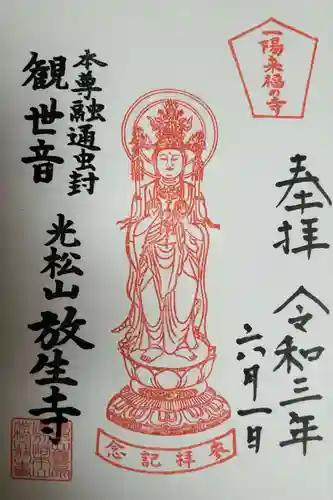 一陽来福の寺
奉拝
令和三年
六月一日
来拝記念
本尊融通虫封
観世音
光松山放生寺